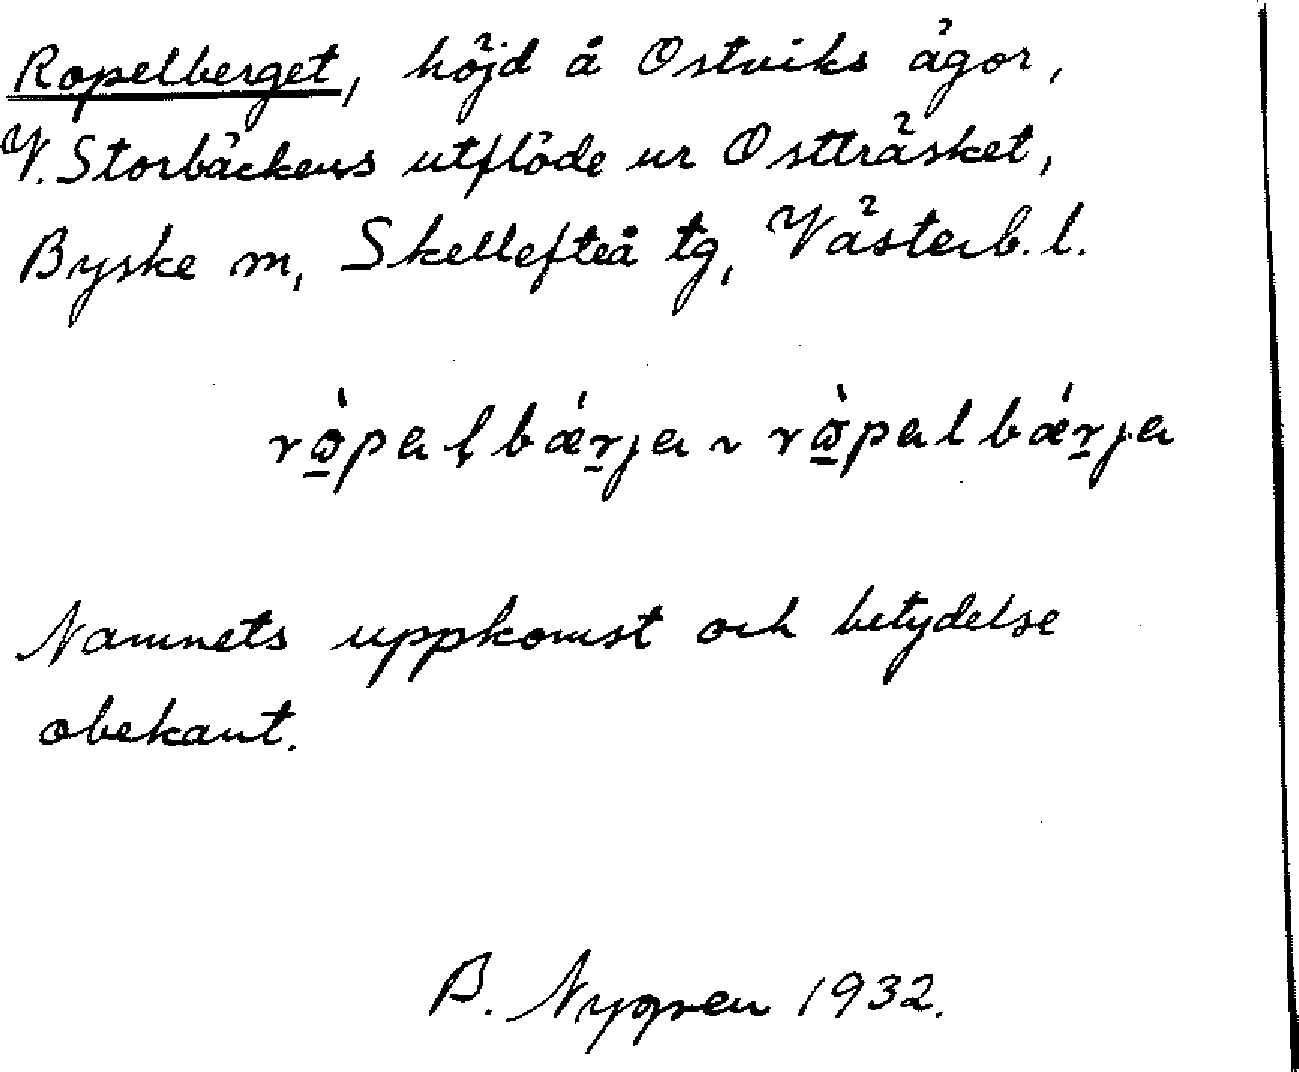 Ropelberget, höjd å Ostviks ägor,
V. Storbäckens utflöde ur Ostträsket,
Byske sn, Skellefteå tg, Västerb. l.
Namnets uppkomst och betydelse
obekant.
B. Nygren 1932.